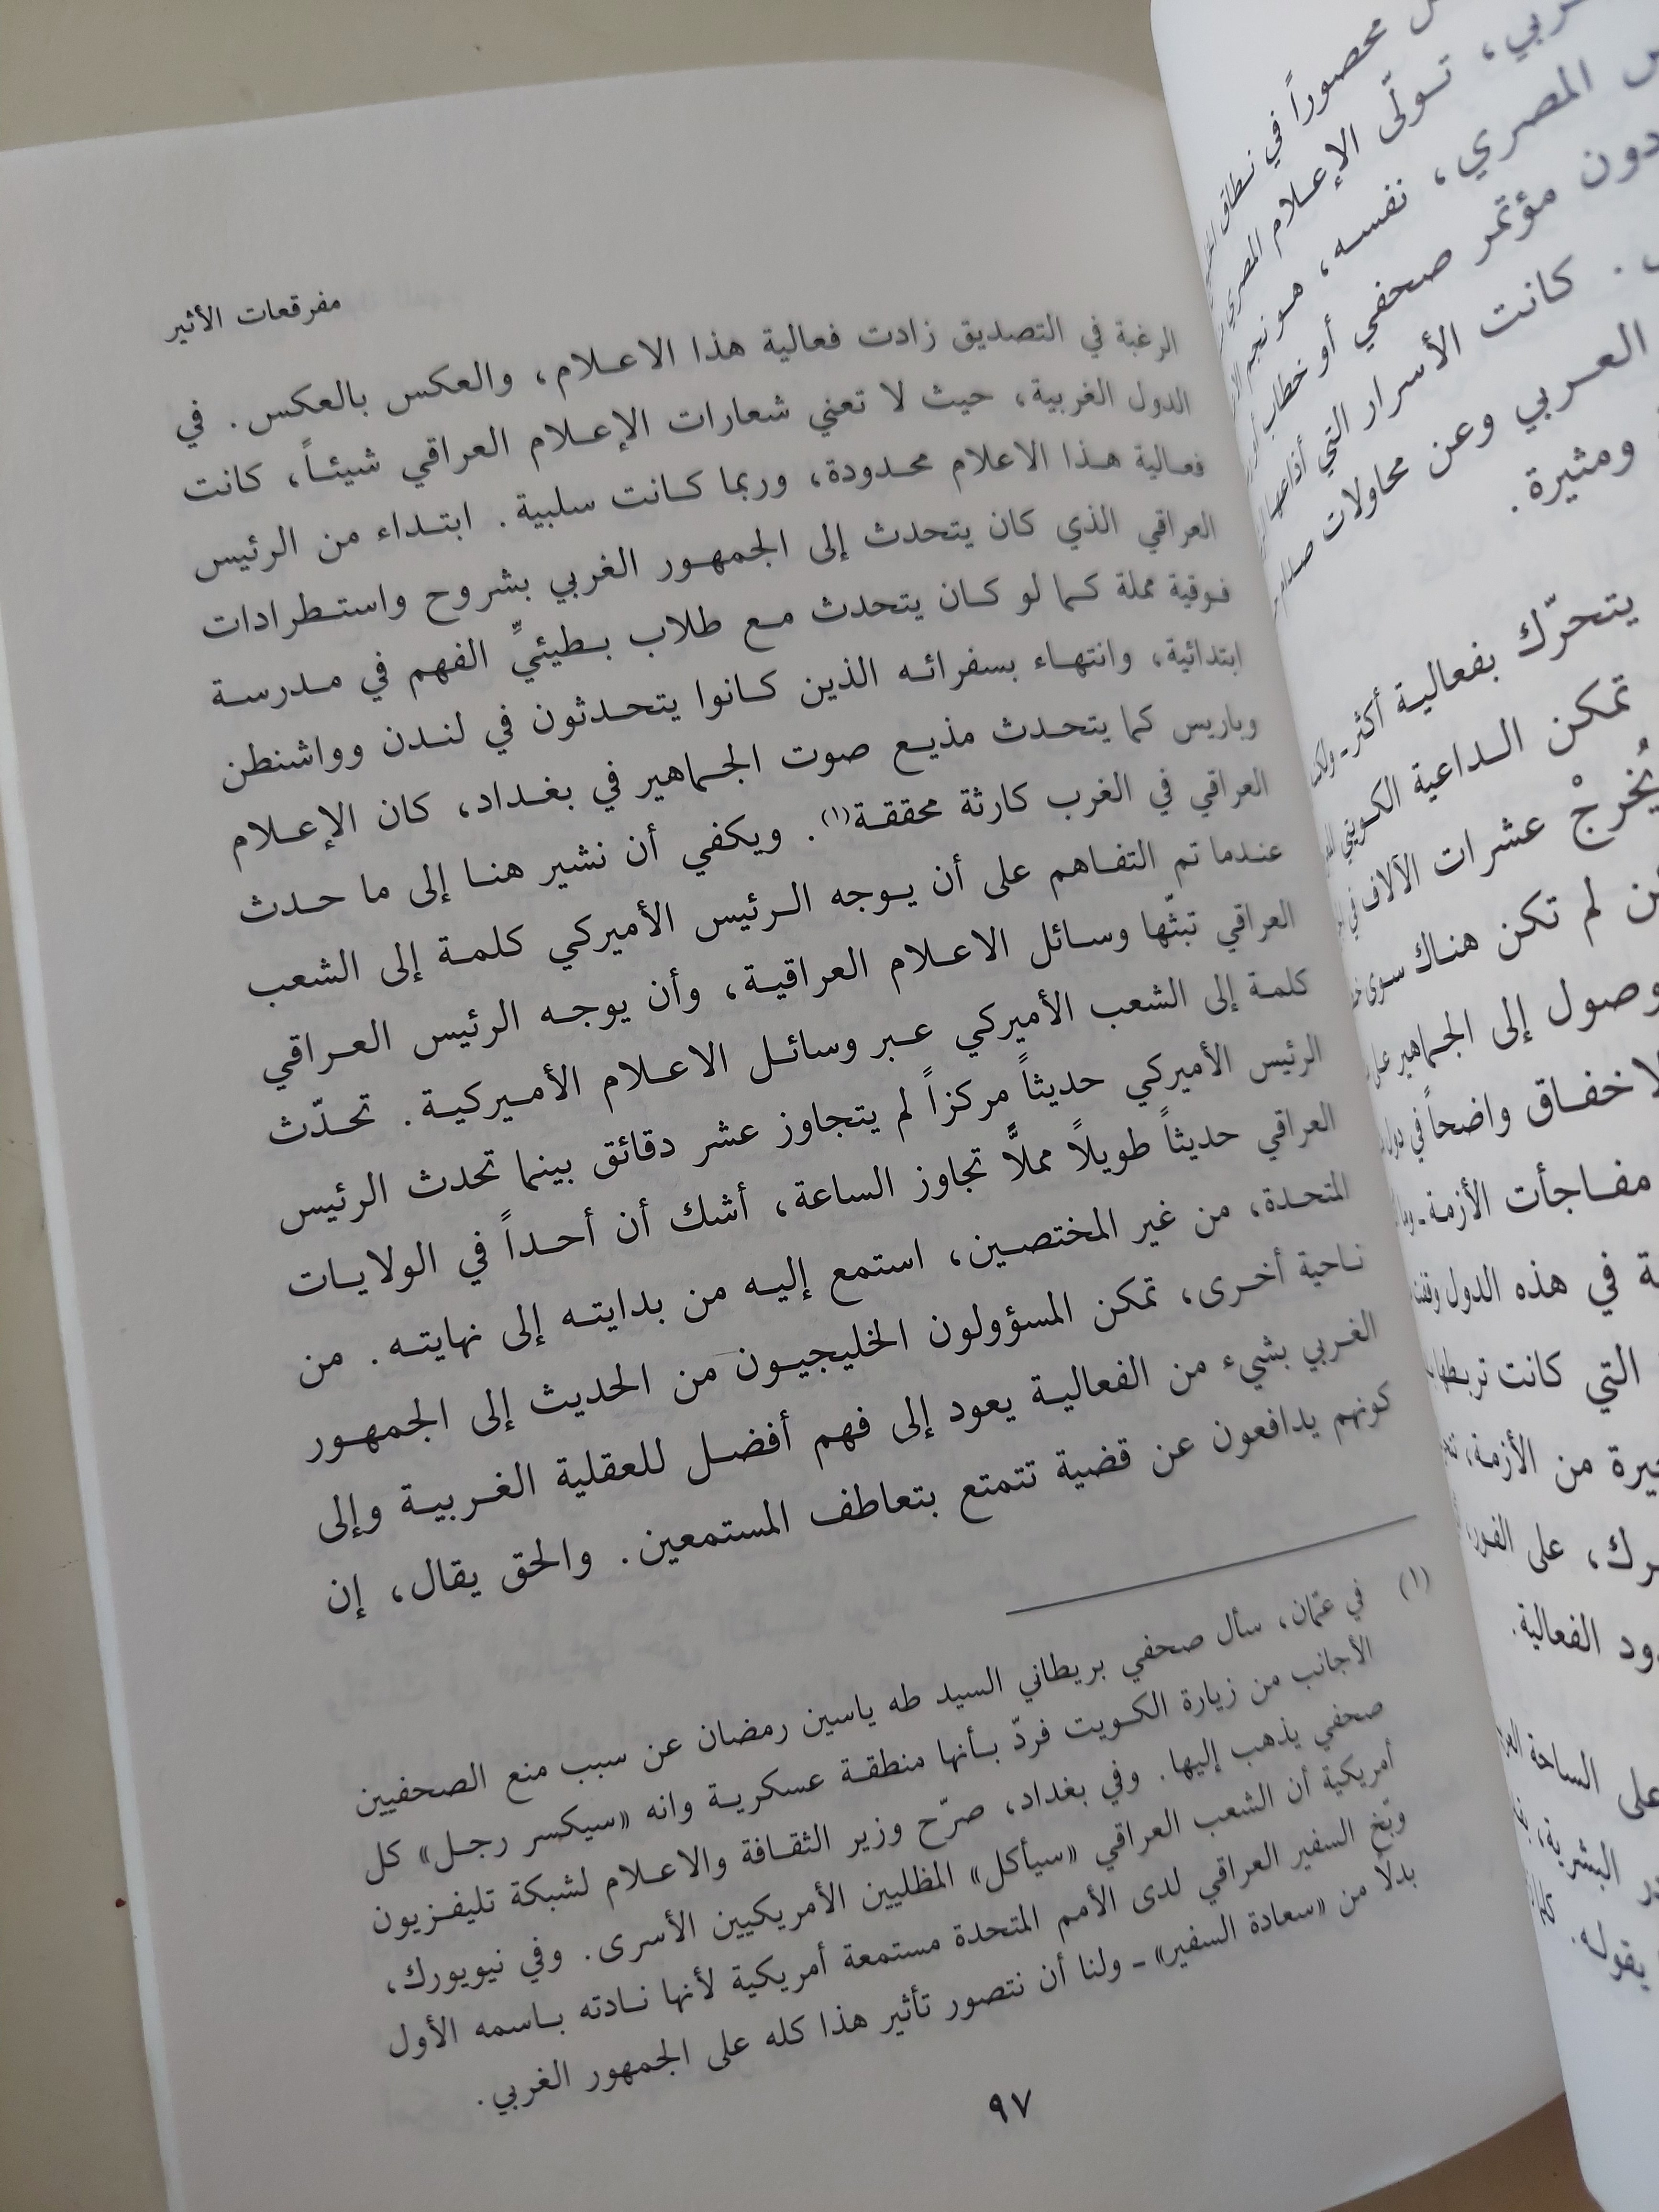 مفرقعات الأثير
الرغبة في التصديق زادت فعالية هذا الاعـلام، والعكس بالعكس. في
الدول الغربية، حيث لا تعني شعارات الإعـلام العراقي شيئـاً، كانت
فعـالية هـذا الاعلام محـدودة، وربما كـانت سلبية. ابتـداء من الرئيس
العراقي الذي كان يتحدث إلى الجمهـور الغربي بشروح واستـطرادات
فـوقية مملة كـما لو كـان يتحدث مـع طلاب بـطيئيِّ الفهم في مـدرسـة
ابتدائية، وانتهـاء بسفرائـه الذين كـانوا يتحـدثون في لنـدن وواشنطن
وباريس كما يتحـدث مذيـع صوت الجـماهير في بغـداد، كان الإعـلام
العراقي في الغرب كارثة محققـة(١). ويكفي أن نشير هنـا إلى ما حـدث
عنـدما تم التفـاهم على أن يـوجه الـرئيس الأميركي كلمـة إلى الشعب
العراقي تبثّها وسـائل الاعـلام العراقيـة، وأن يوجـه الرئيس العـراقي
كلمـة إلى الشعب الأميركي عـبر وسائـل الاعـلام الأمـيركيـة. تحـدّث
الرئيس الأميركي حديثاً مركزاً لم يتجاوز عشر دقائق بينما تحدث الرئيس
العراقي حديثاً طويلاً مملاً تجاوز الساعة، أشك أن أحـداً في الولايـات
المتحـدة، من غير المختصـين، استمع إليـه من بدايتـه إلى نهايتـه. من
نـاحية أخـرى، تمكن المسؤولون الخليجيـون من الحديث إلى الجمهـور
الغـربي بشيء من الفعاليـة يعود إلى فهم أفضـل للعقلية الغـربيـة وإلى
كونهم يدافعون عن قضية تتمتع بتعاطف المستمعين. والحق يقال، إن
(١) في عمّان، سأل صحفي بريطاني السيد طه ياسين رمضان عن سبب منع الصحفيين
الأجانب من زيارة الكـويت فردّ بـأنها منطقـة عسكريـة وانه «سيكسر رجـل» كل
صحفي يذهب إليها. وفي بغداد، صرّح وزير الثقـافة والاعـلام لشبكة تليفـزيون
أمريكية أن الشعب العراقي «سيأكل» المظليين الأمريكيين الأسرى. وفي نيويورك،
وبّخ السفير العراقي لدى الأمم المتحدة مستمعة أمريكية لأنها نـادته بـاسمه الأول
بدلاً من «سعادة السفير» ـ ولنا أن نتصور تأثير هذا كله على الجمهور الغربي.
٩٧
محصوراً في نطاق
تـولّى الإعـلام المصري
المصري، نفسـه، هـو نجم
دون مؤتمر صحفي أو خطاب
كانت الأسرار التي أذاعهـا
العـربي وعن محاولات
ومثيرة.
يتحرّك بفعاليـة أكثر ـ
تمكن الـداعية الكـويتي
يُخرجْ عشرات الآلاف في
لم تكن هنـاك سوى
وصول إلى الجـماهير على
واضحاً في
مفـاجآت الأزمة ـ
في هذه الدول وقفت
التي كانت تربطها
من الأزمـة،
على الفور،
الفعالية.
على الساحة
البشرية،
يقولـه.